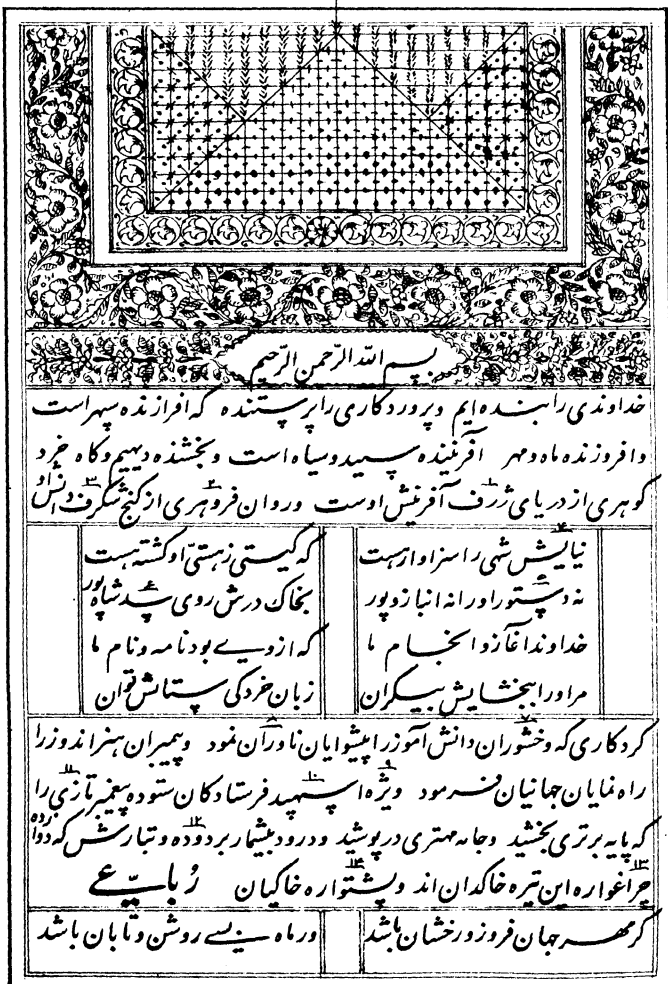 بسم الله الرّحمن الرّحیم
خداوندی را بنده ایم و پروردکاری را پرستنده که افرازنده سپهر است
و افروزنده ماه و مهر آفریننده سپید و سیاه است و بخشنده دیهیم و کاه خرد
کوهری از دریای ژرف آفرینش اوست و روان فروهری از کنج شکرف دانش او
نیایش شهی را سزاوار هست که کیتی ز هستیّ او کشته هست
نه دستور او را نه انباز و پور بخاک درش روی پد شاه پور
خداوند آغاز و انجام ما که از وی بود نامه و نام ما
مر او را ببخشایش بیکران زبان خرد کی ستایش توان
کردکاری که وخشوران دانش آموز را پیشوایان ناوران نمود و پیمبران هنر اندوز را
راه نمایان جهانیان فرمود ویژه اسپهبد فرستادکان ستوده پیغمبر تازی را
که پایه برتری بخشید و جامه مهتری در پوشید و درود بیشمار بر دوده و تبارش که دوازده
چراغواره این تیره خاکدان اند و پشتواره خاکیان رُباعیّ
کر مهر جهان فروز رخشان باشد ور ماه بسے روشن و تابان باشد